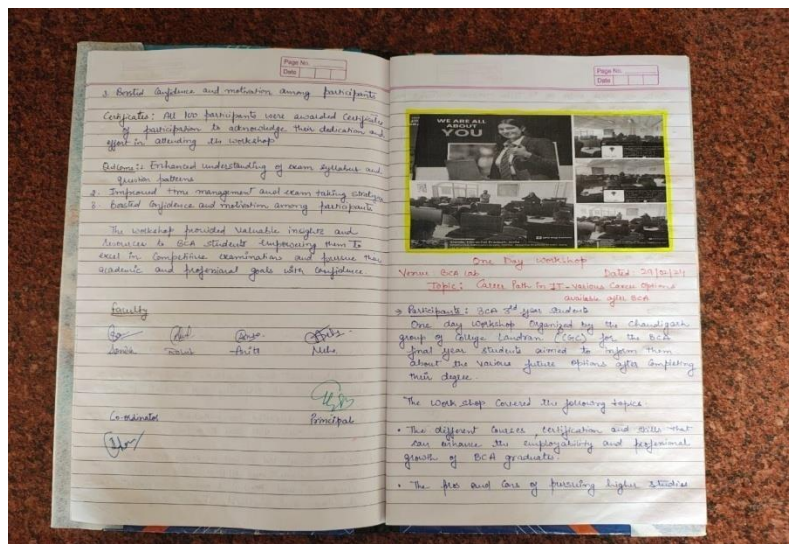 Page No.
Date
3. Bosted Confidence and motivation among participants
Certificates: All 100 participants were awarded Certificates
of participation to acknowledge their dedication and
effort in attending the workshop
Outcome:: Enhanced understanding of exam syllabus and
question patterns
2. Improved time management and exam taking strategies
3. Bosted Confidence and motivation among participants
The workshop provided valuable insights and
resources to BCA students empowering them to
excel in Competitive examinations and pursue their
academic and professional goals with confidence
Faculty
Co-ordinator
Principal
Page No.
Date
WE ARE ALL
ABOUT
YOU
One Day Workshop
Venue: BCA Lab
Topic: Career Path In IT - Various Career Options
available after BCA
→ Participants: BCA 3rd year students
One day workshop Organized by the Chandigarh
group of College Landran (CGC) for the BCA
final year students aimed to inform them
about the various future options after completing
their degree.
The workshop Covered the following topics.
• The different Courses, certification and skills that
can enhance the employability and professional
growth of BCA graduates.
• The pros and Cons of pursuing higher studies